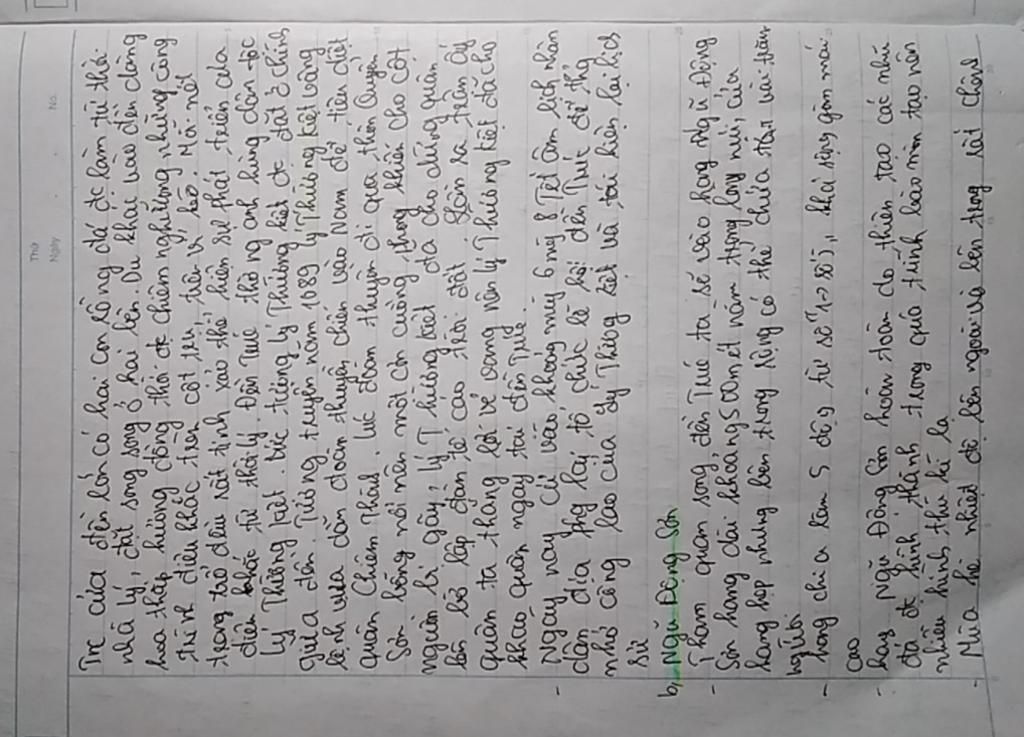 Thứ
Ngày
No.
Trc của đền lớn có hai con rồng đá đc làm từ thời
nhà lý, đặt song song ở hai bên Du khách vào đền dâng
hương thắp hương đồng thời đc chiêm ngưỡng những công
trình điêu khắc trên cột, trên vì kèo. Mỗi nét
trong trổ đều rất tinh xảo thể hiện sự phát triển của
điêu khắc từ thời lý. Đền Trúc thờ ng anh hùng dân tộc
Lý Thường kiệt. bức tượng lý Thường kiệt đc đặt ở chính
giữa đền. Tương truyền năm 1089 lý Thường kiệt vâng
lệnh vua dẫn đoàn thuyền chiến vào Nam để tiến diệt
quân Chiêm Thành. lúc đoàn thuyền đi qua thôn Quyển
Sơn bỗng nổi nên một cơn cuồng phong khiến cho cột
nguồn bị gãy, lý Thường kiệt đã cho dừng quân
lên bờ lập đàn tế cáo trời đất. Sau ra trận ấy
quân ta thắng lợi vẻ vang nên lý Thường kiệt đã cho
khao quân ngay tại đền Trúc.
- Ngày nay cứ vào khoảng mùng 6 mùng 8 Tết âm lịch nhân
dân địa phg hay tổ chức lễ hội đền Trúc để tg
nhớ công lao của Lý Thường kiệt và tái hiện lại lịch
sử
b, Ngũ Động Sơn
- Tham quan song đền Trúc ta sẽ vào hang Ngũ Động
Sơn hang dài khoảng 500 mét nằm trong lòng núi, cửa
hang hẹp nhưng bên trong rộng có thể chứa tới vài trăm
người
- hang chia làm 5 động từ số "1 -> số 5", khai rộng gồm mái
cao
- hang Ngũ Động Sơn hoàn toàn do thiên tạo các nhũ
đá đc hình thành trong quá trình bào mòn tạo nên
nhiều hình thù kì lạ
- Mùa hè nhiệt độ bên ngoài và bên trong rất chênh